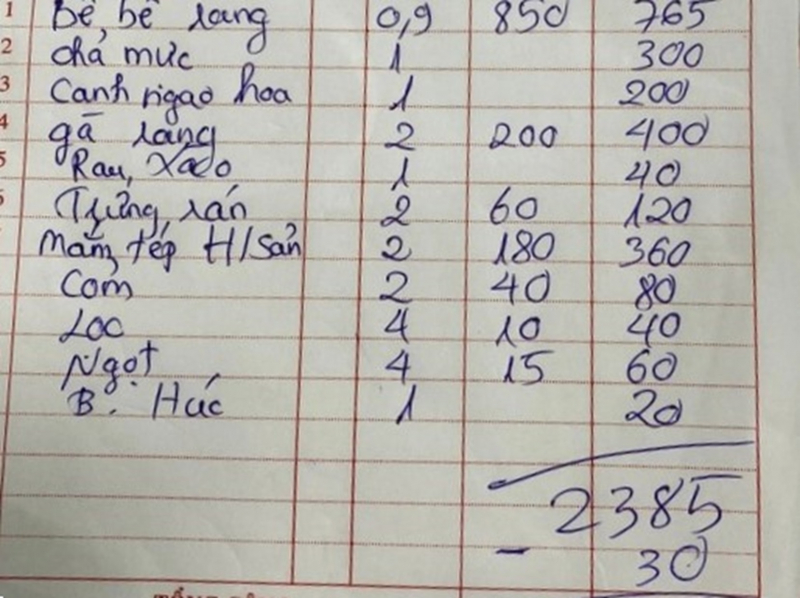 1 Bề, bề rang 0,9 850 765
2 chả mực 1 300
3 Canh ngao hoa 1 200
4 gà rang 2 200 400
5 Rau, xào 1 40
6 Trứng, rán 2 60 120
Mắm, tép H/sản 2 180 360
Cơm 2 40 80
Lọc 4 10 40
Ngọt 4 15 60
B. Húc 1 20
2385
- 30